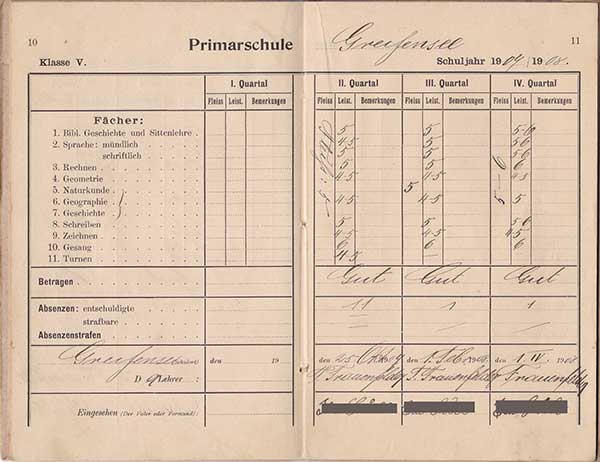 10
11
Primarschule Greifensee
Klasse V.
Schuljahr 1907/1908.
I. Quartal II. Quartal III. Quartal IV. Quartal
Fleiss Leist. Bemerkungen Fleiss Leist. Bemerkungen Fleiss Leist. Bemerkungen Fleiss Leist. Bemerkungen
Fächer:
1. Bibl. Geschichte und Sittenlehre 5 5 5-6
2. Sprache: mündlich 4-5 5 5-6
schriftlich 5 5 5-6
3. Rechnen 5 5 6
4. Geometrie 4-5 4-5 4-5
5. Naturkunde
6. Geographie 4-5 4-5 5
7. Geschichte
8. Schreiben 5 5 5-6
9. Zeichnen 4-5 4-5 4-5
10. Gesang 6 6 6
11. Turnen 4-5 — —
5 5-6
Betragen Gut Gut Gut
Absenzen: entschuldigte 11 1 1
strafbare
Absenzenstrafen
Greifensee den 19 den 25. Okt. 1907 den 1. Feb. 1908. den 1. IV. 1908
D Lehrer: Frauenfelder Frauenfelder Frauenfelder
Eingesehen (Der Vater oder Vormund):